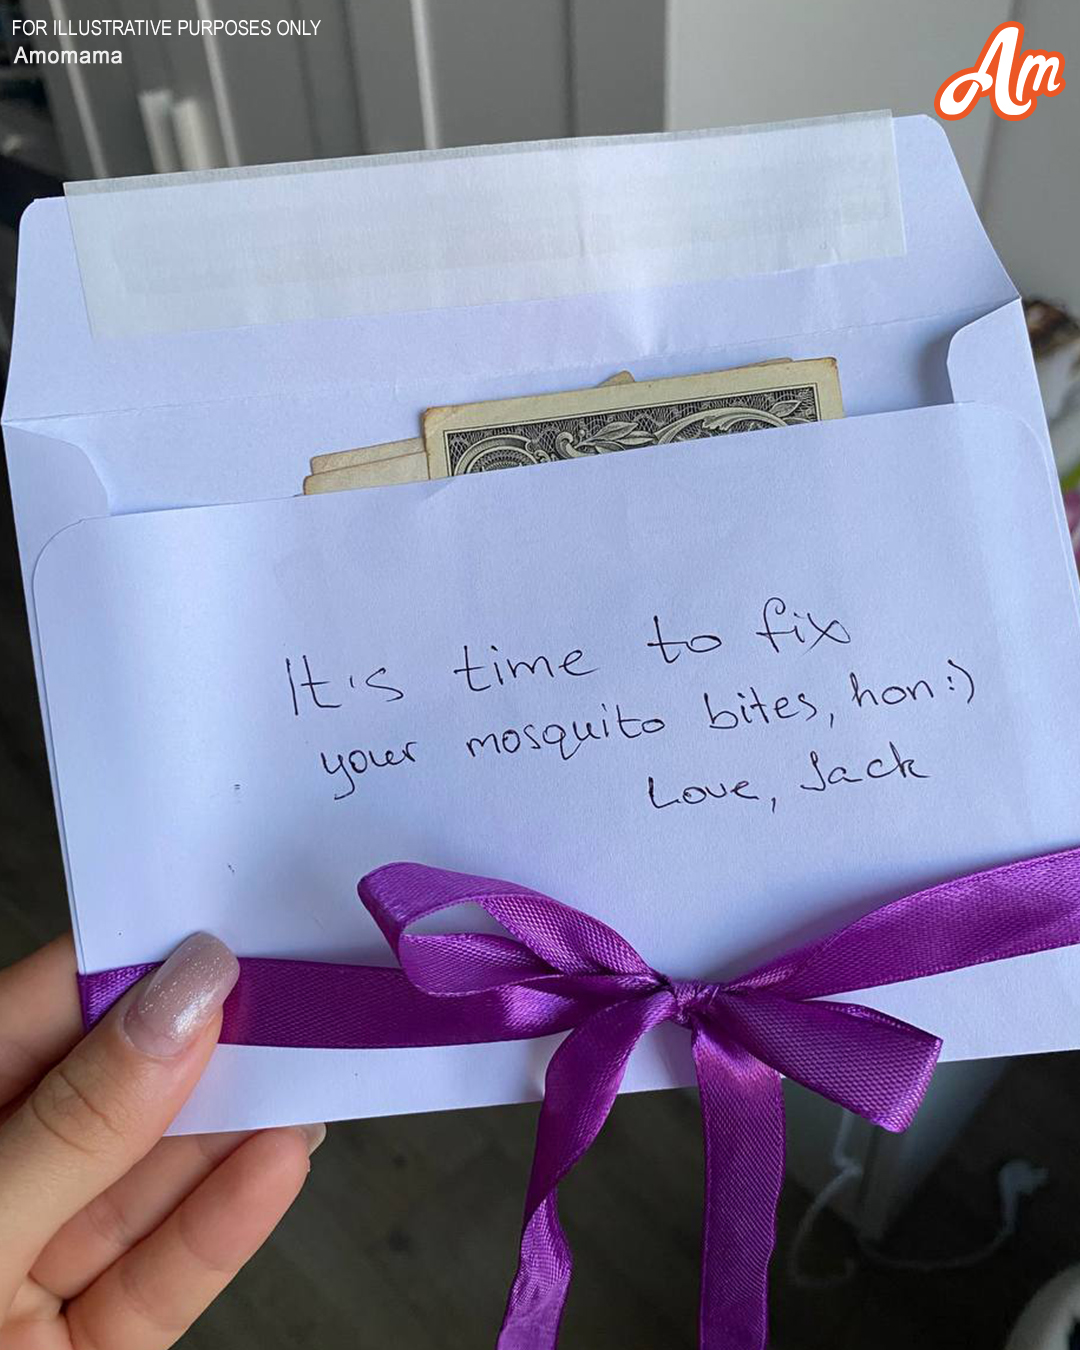 FOR ILLUSTRATIVE PURPOSES ONLY
Amomama
Am
It's time to fix
your mosquito bites, hon:)
Love, Jack